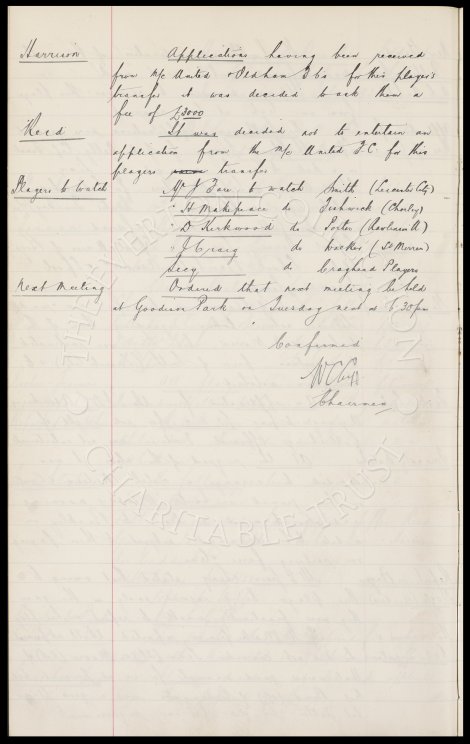 Harrison Applications having been received
from M/c United & Oldham Ath for this player's
transfer it was decided to ask them a
fee of £3000
Reid It was decided not to entertain an
application from the M/c United FC for this
players transfer
Players to Watch Mr to watch Smith (Leicester City)
" H Makepeace do Fishwick (Chorley)
" D Kirkwood do Porter
" J Craig do (St Mirren)
Secy do Craghead Players
Next Meeting Ordered that next meeting be held
at Goodison Park on Tuesday next at 6.30pm
Confirmed
W C Cuff
Chairman
THE EVERTON
CHARITABLE TRUST